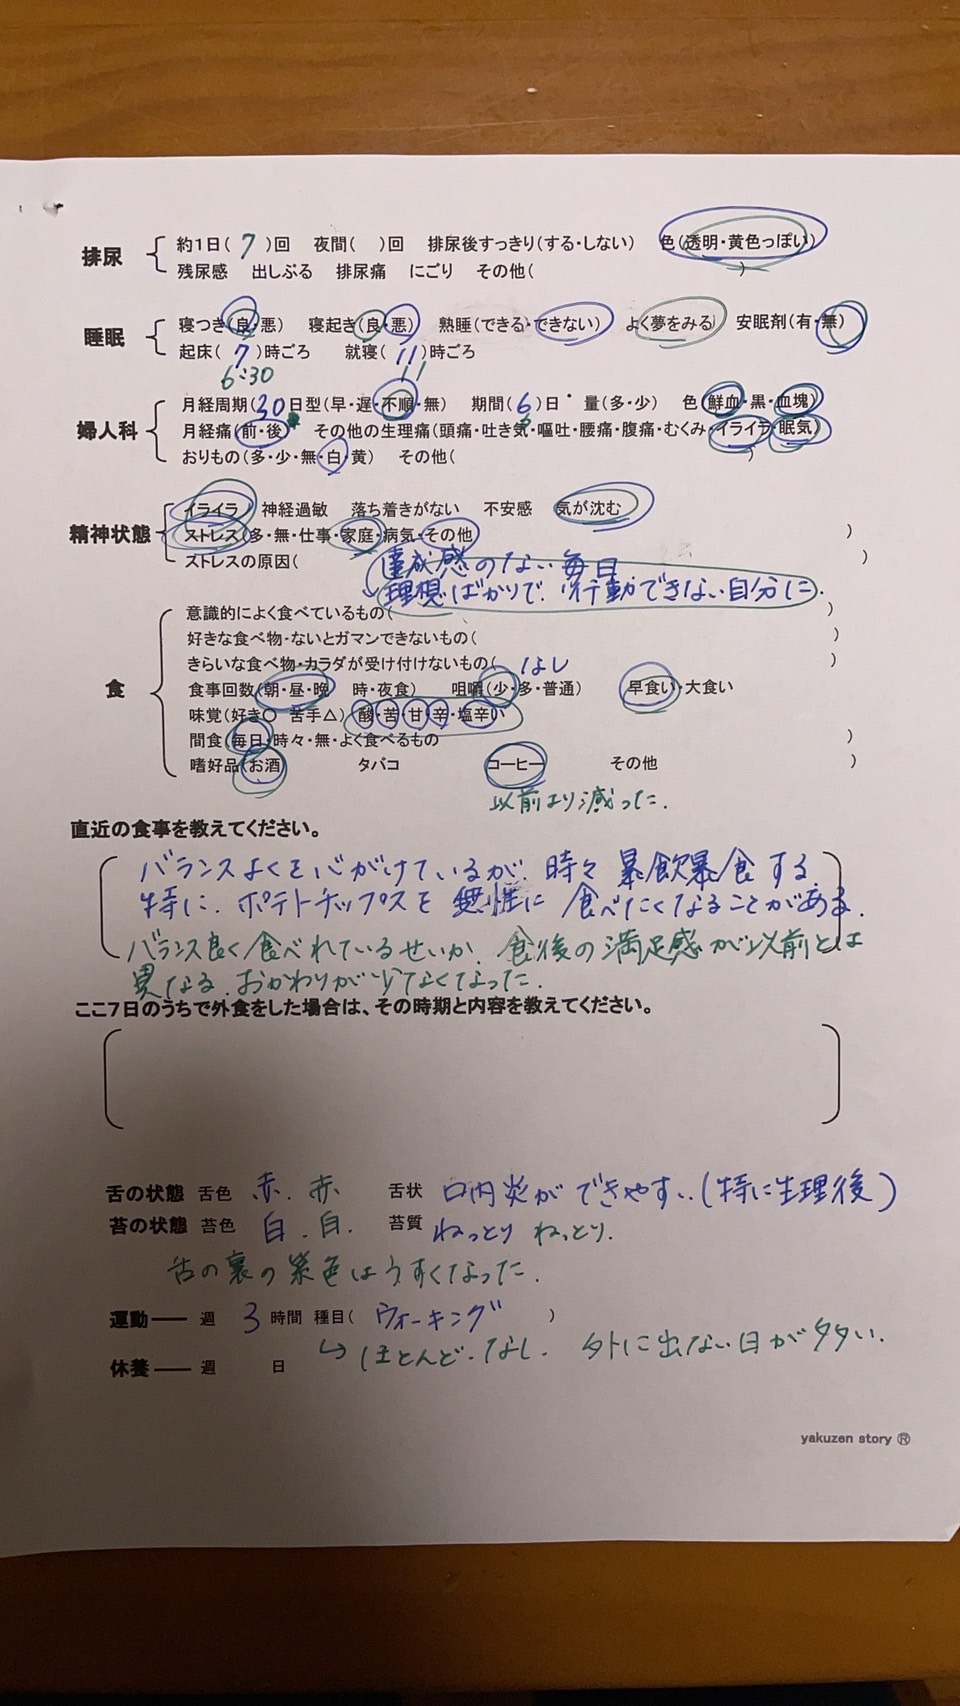 排尿 約1日( 7 )回 夜間( )回 排尿後すっきり(する・しない) 色(透明・黄色っぽい)
残尿感 出しぶる 排尿痛 にごり その他( )
睡眠 寝つき(良・悪) 寝起き(良・悪) 熟睡(できる・できない) よく夢をみる 安眠剤(有・無)
起床( 7 )時ごろ 就寝( 11 )時ごろ
6:30 11
婦人科 月経周期(30日型(早・遅・不順・無) 期間( 6 )日 量(多・少) 色(鮮血・黒・血塊)
月経痛(前・後) その他の生理痛(頭痛・吐き気・嘔吐・腰痛・腹痛・むくみ・イライラ・眠気)
おりもの(多・少・無・白・黄) その他( )
精神状態 イライラ 神経過敏 落ち着きがない 不安感 気が沈む
ストレス(多・無・仕事・家庭・病気・その他 )
ストレスの原因( 達成感のない毎日 )
理想ばかりで、行動できない自分に.
食 意識的によく食べているもの( )
好きな食べ物・ないとガマンできないもの( )
きらいな食べ物・カラダが受け付けないもの( なし )
食事回数(朝・昼・晩 時・夜食) 咀嚼(少・多・普通) 早食い・大食い
味覚(好き○ 苦手△)(酸・苦・甘・辛・塩辛い
間食(毎日・時々・無・よく食べるもの )
嗜好品(お酒 タバコ コーヒー その他 )
以前より減った.
直近の食事を教えてください。
バランスよくを心がけているが、時々暴飲暴食する.
特に、ポテトチップスを無性に食べたくなることがある.
バランス良く食べれているせいか、食後の満足感が以前とは
異なる.おかわりが少なくなった.
ここ7日のうちで外食をした場合は、その時期と内容を教えてください。
舌の状態 舌色 赤. 赤 舌状 口内炎ができやすい.(特に生理後)
苔の状態 苔色 白.白. 苔質 ねっとり ねっとり.
舌の裏の紫色はうすくなった.
運動 ― 週 3 時間 種目( ウォーキング )
↳ ほとんどなし. 外に出ない日が多い.
休養 ― 週 日
yakuzen story ®